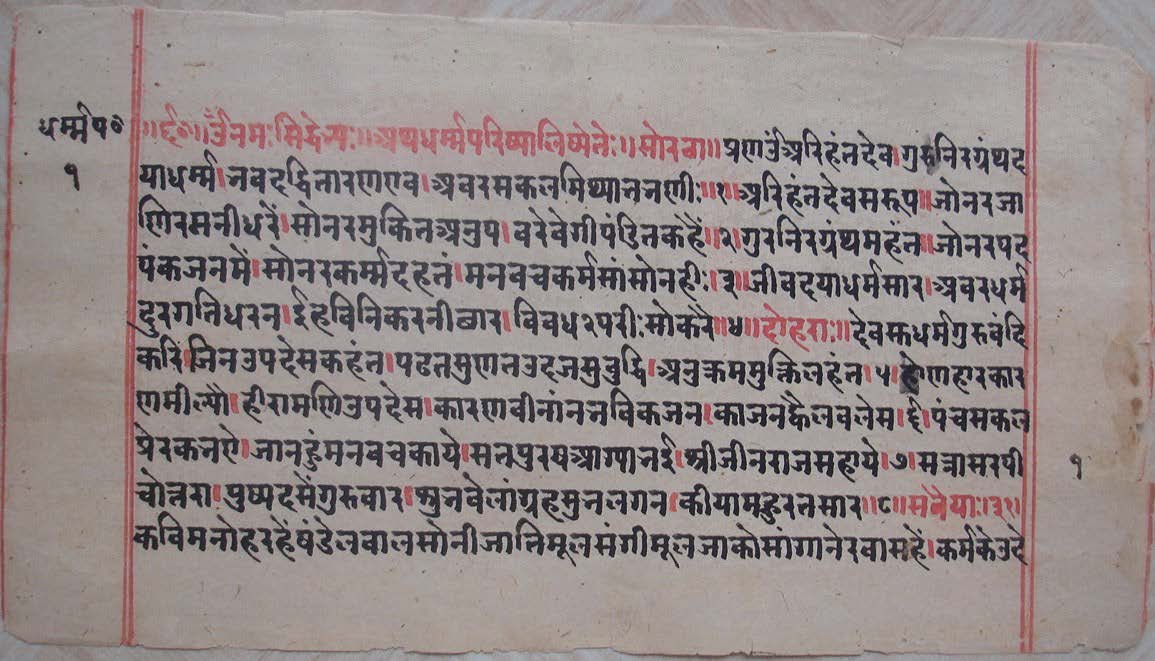 धर्म्मप०
१
॥र्द०॥उँनमःसिद्देभ्यः॥अथधर्म्मपरिष्यालिष्येतेः॥सोरठा॥प्रणउंअरिहंतदेव।गुरुनिरग्रंथद
याधर्म्म।नवदद्धितारणएव।अवरसकलमिथ्यातनणीः॥१॥अरिहंतदेवसरूप॥जोनरजा
णिरमनीधरें।सोनरमुकितअनुप।वरेवेगीपंडितकहें॥२॥गुरनिरग्रंथमहंत॥जोनरपद
पंकजनमें।सोनरकर्म्मदहनं।मनवचकर्मसांसोनहीः॥३॥जीवदयाधर्मसार।अवरधर्म
दुरगतिधरन।ईहविनिकरनीठार।विवध२परीःसोकरे॥४॥दोहराः॥देवस्तधर्मगुरुवंदि
करि।जिनउपदेसकहंत।पढतसुणतउदजसुबुद्दि।अनुक्रममुक्तिलहंत।५।होणहारकार
णमील्यौ।हीरामणिउपदेस।कारणवीनांनजविकजन।काजनह्वैलवलेस।६।पंचसकल
प्रेरकनऐ।जानहुंमनवचकाये।सतपुरषआग्यानई।श्रीजीनराजसहाये।७।सत्रासरपी
चोत्नरा।पुष्पदसेंगुरुवार।सुनवेलांग्रहसुनलगन।कीयामहुरतसार॥८॥सवैयाः।३१।
कविमनोहरहैंषंडेलवालसोनीजातिमूलसंगीमूलजाकोसांगानेरवासहें।कर्मकेउदे
१